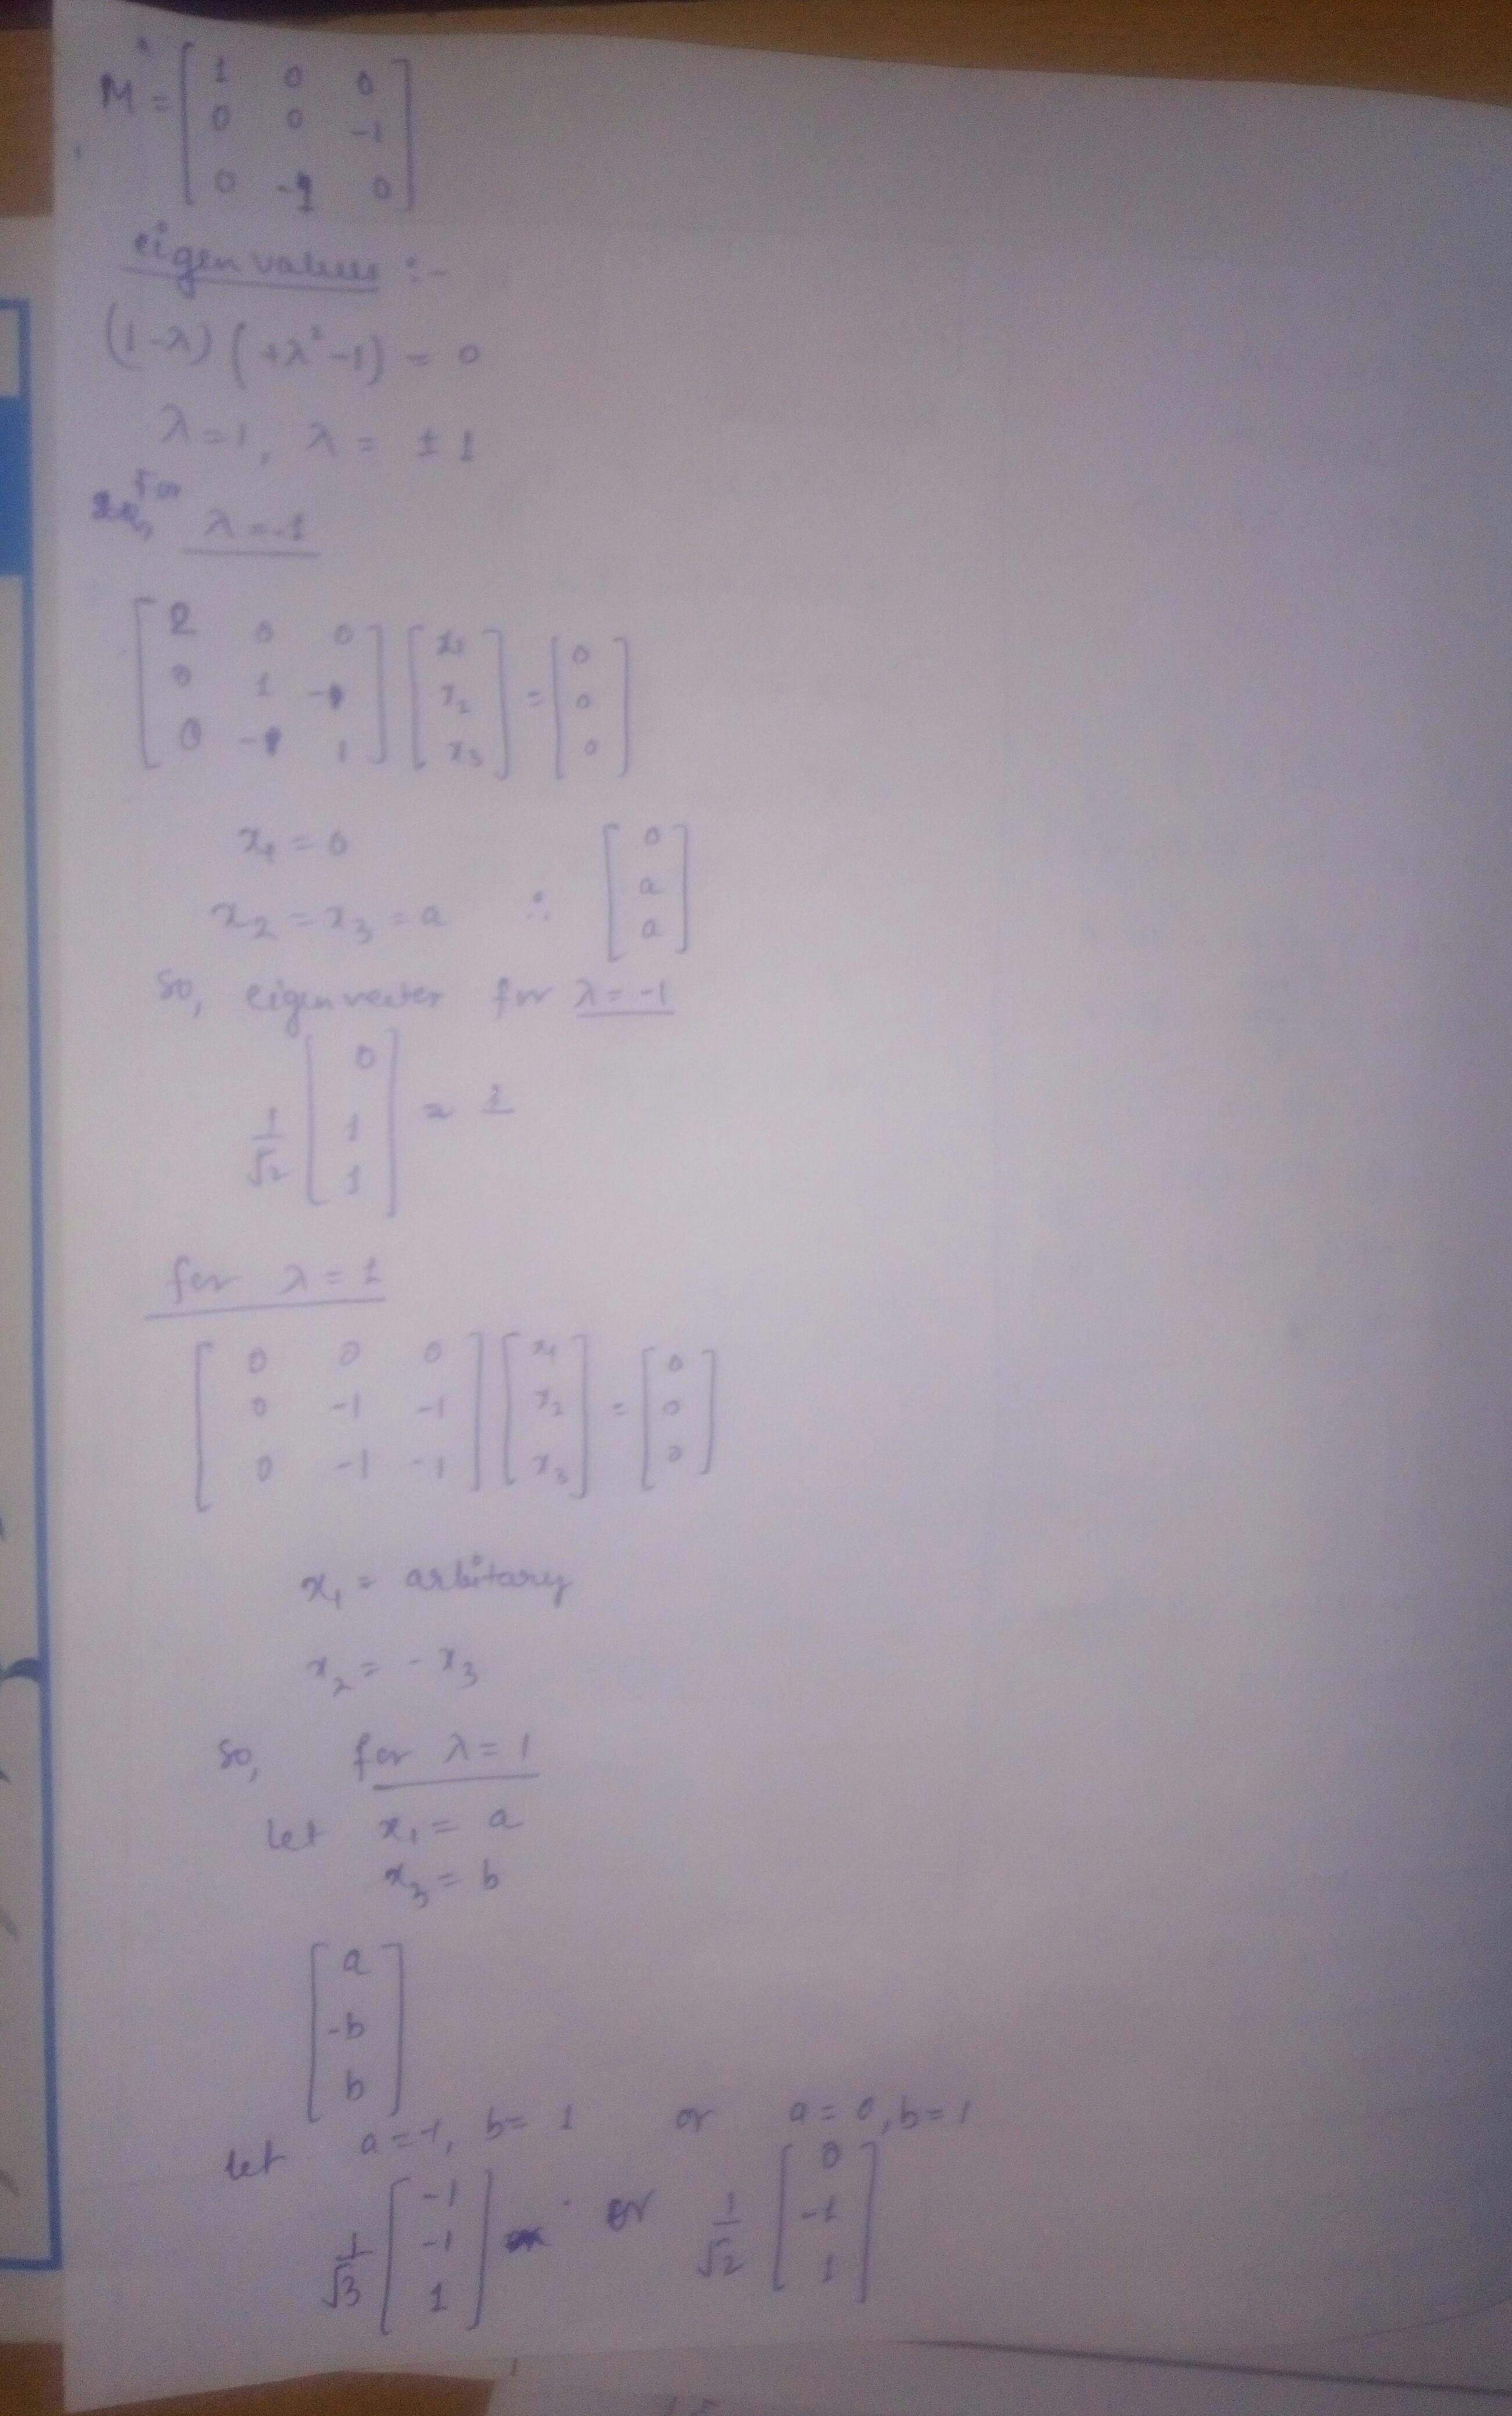 M = [ 1 0 0
0 0 -1
0 -1 0 ]
eigen values :-
(1-λ) (+λ²-1) = 0
λ=1, λ = ±1
for λ=-1
[ 2 0 0
0 1 -1
0 -1 1 ] [ x₁ x₂ x₃ ] = [ 0 0 0 ]
x₁ = 0
x₂ = x₃ = a ∴ [ 0 a a ]
So, eigenvector for λ=-1
1/√2 [ 0 1 1 ] =
for λ = 1
[ 0 0 0
0 -1 -1
0 -1 -1 ] [ x₁ x₂ x₃ ] = [ 0 0 0 ]
x₁ = arbitary
x₂ = - x₃
So, for λ = 1
let x₁ = a
x₃ = b
[ a -b b ]
let a=-1, b= 1 or a=0, b=1
1/√3 [ -1 -1 1 ] or 1/√2 [ 0 -1 1 ]